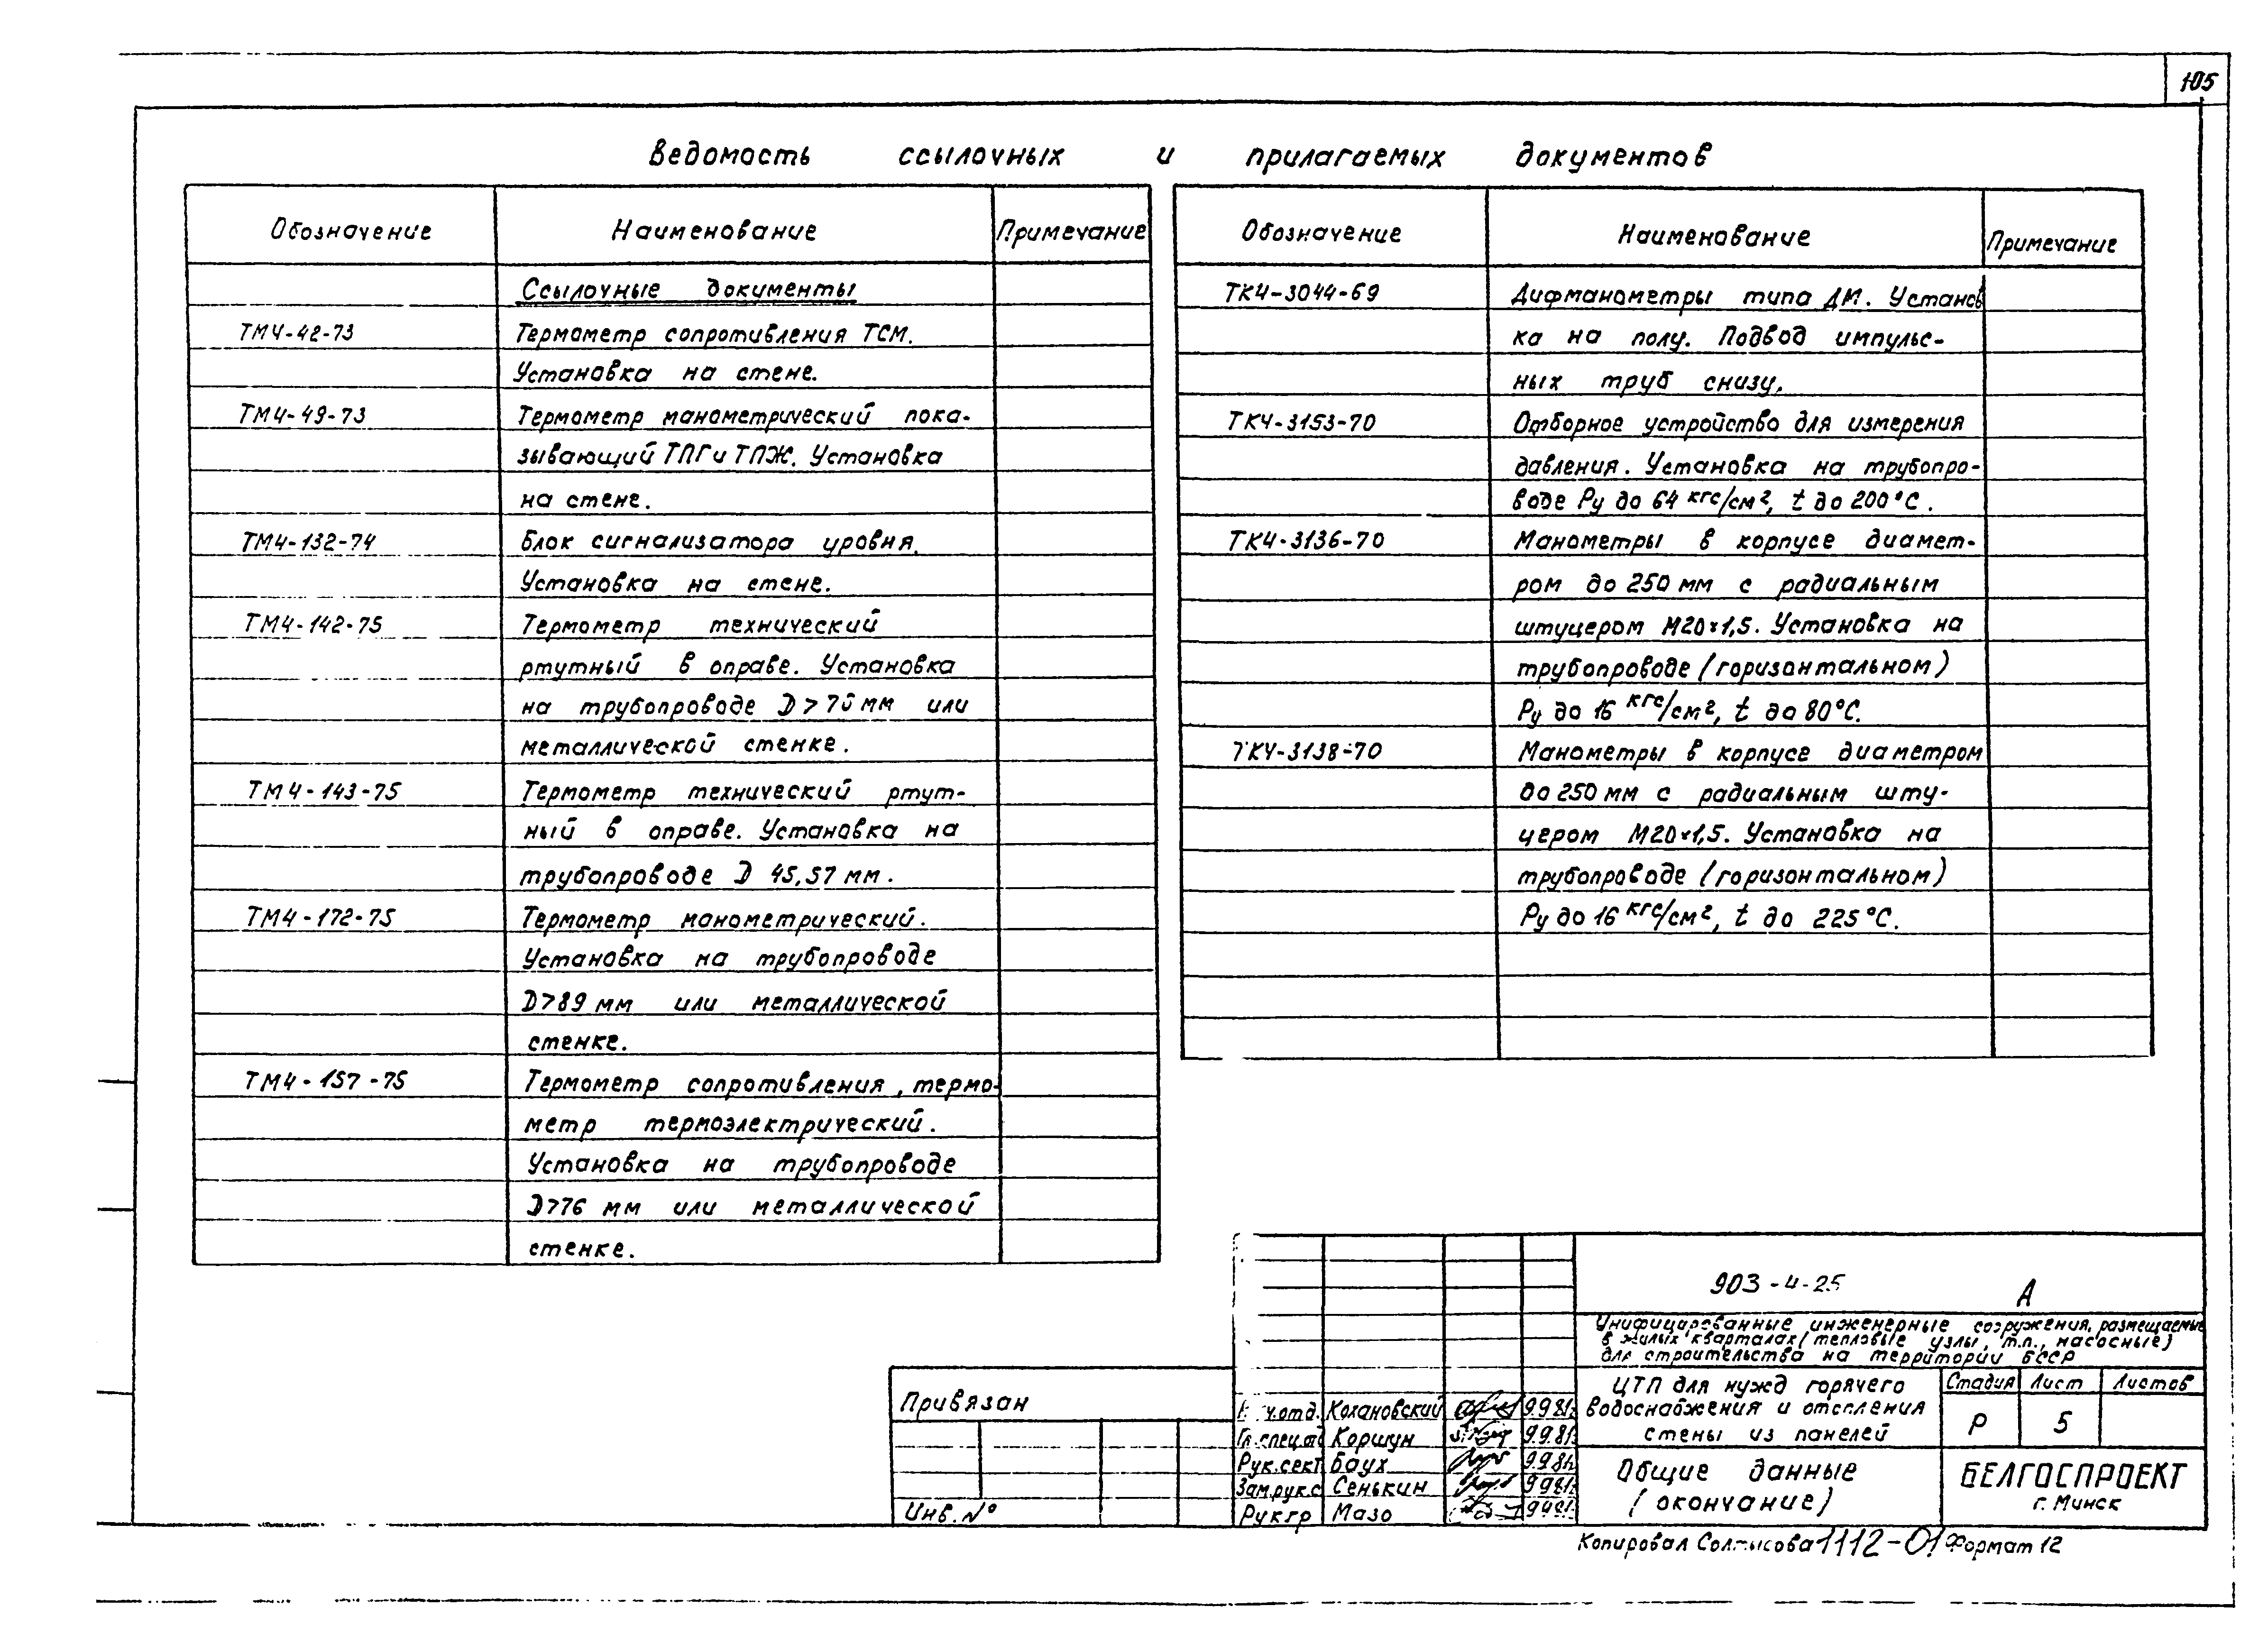 105
Ведомость ссылочных и прилагаемых документов
Обозначение Наименование Примечание
Ссылочные документы
ТМ4-42-73 Термометр сопротивления ТСМ.
Установка на стене.
ТМ4-49-73 Термометр манометрический пока-
зывающий ТПГ и ТПЖ. Установка
на стене.
ТМ4-132-74 Блок сигнализатора уровня.
Установка на стене.
ТМ4-142-75 Термометр технический
ртутный в оправе. Установка
на трубопроводе D > 76 мм или
металлической стенке.
ТМ4-143-75 Термометр технический ртут-
ный в оправе. Установка на
трубопроводе D 45,57 мм.
ТМ4-172-75 Термометр манометрический.
Установка на трубопроводе
D>89 мм или металлической
стенке.
ТМ4-157-75 Термометр сопротивления, термо-
метр термоэлектрический.
Установка на трубопроводе
D>76 мм или металлической
стенке.
Обозначение Наименование Примечание
ТК4-3044-69 Дифманометры типа ДМ. Установ
ка на полу. Подвод импульс-
ных труб снизу.
ТК4-3153-70 Отборное устройство для измерения
давления. Установка на трубопро-
воде Ру до 64 кгс/см², t до 200°С.
ТК4-3136-70 Манометры в корпусе диамет-
ром до 250 мм с радиальным
штуцером М20×1,5. Установка на
трубопроводе (горизонтальном)
Ру до 16 кгс/см², t до 80°С.
ТК4-3138-70 Манометры в корпусе диаметром
до 250 мм с радиальным шту-
цером М20×1,5. Установка на
трубопроводе (горизонтальном)
Ру до 16 кгс/см², t до 225°С.
903-4-25 А
Унифицированные инженерные сооружения, размещаемые
в жилых кварталах (тепловые узлы, т.п., насосные)
для строительства на территории БССР
ЦТП для нужд горячего
водоснабжения и отопления
стены из панелей
Стадия Лист Листов
Р 5
Общие данные
(окончание)
БЕЛГОСПРОЕКТ
г. Минск
Привязан
Инв. №
отд. Кохановский 9.9.81г.
Гл.спец.от Коршун 9.9.81г.
Рук.сект Баух 9.9.81г.
Зам.рук.с Сенькин 9.9.81г.
Рук гр Мазо
Копировал Солтысова 1112-01 Формат 12